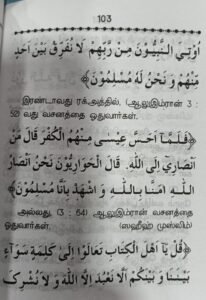 103
اُوْتِيَ النَّبِيُّوْنَ مِنْ رَبِّهِمْ لَا نُفَرِّقُ بَيْنَ اَحَدٍ
مِنْهُمْ وَ نَحْنُ لَهُ مُسْلِمُوْنَ﴾
இரண்டாவது ரக்அத்தில், (ஆலுஇம்ரான் 3 :
52 வது வசனத்தை ஓதுவார்கள்.
﴿فَلَمَّا اَحَسَّ عِيْسٰى مِنْهُمُ الْكُفْرَ قَالَ مَنْ
اَنْصَارِيْ اِلَى اللّٰهِ. قَالَ الْحَوَارِيُّوْنَ نَحْنُ اَنْصَارُ
اللّٰهِ اٰمَنَّا بِاللّٰهِ وَ اشْهَدْ بِاَنَّا مُسْلِمُوْنَ﴾
அல்லது, (3 : 64) ஆலுஇம்ரான் வசனத்தை
ஓதுவார்கள். (ஸஹீஹ் முஸ்லிம்)
﴿قُلْ يَا اَهْلَ الْكِتَابِ تَعَالَوْا اِلٰى كَلِمَةٍ سَوَآءٍ
بَيْنَنَا وَ بَيْنَكُمْ اَلَّا نَعْبُدَ اِلَّا اللّٰهَ وَ لَا نُشْرِكَ